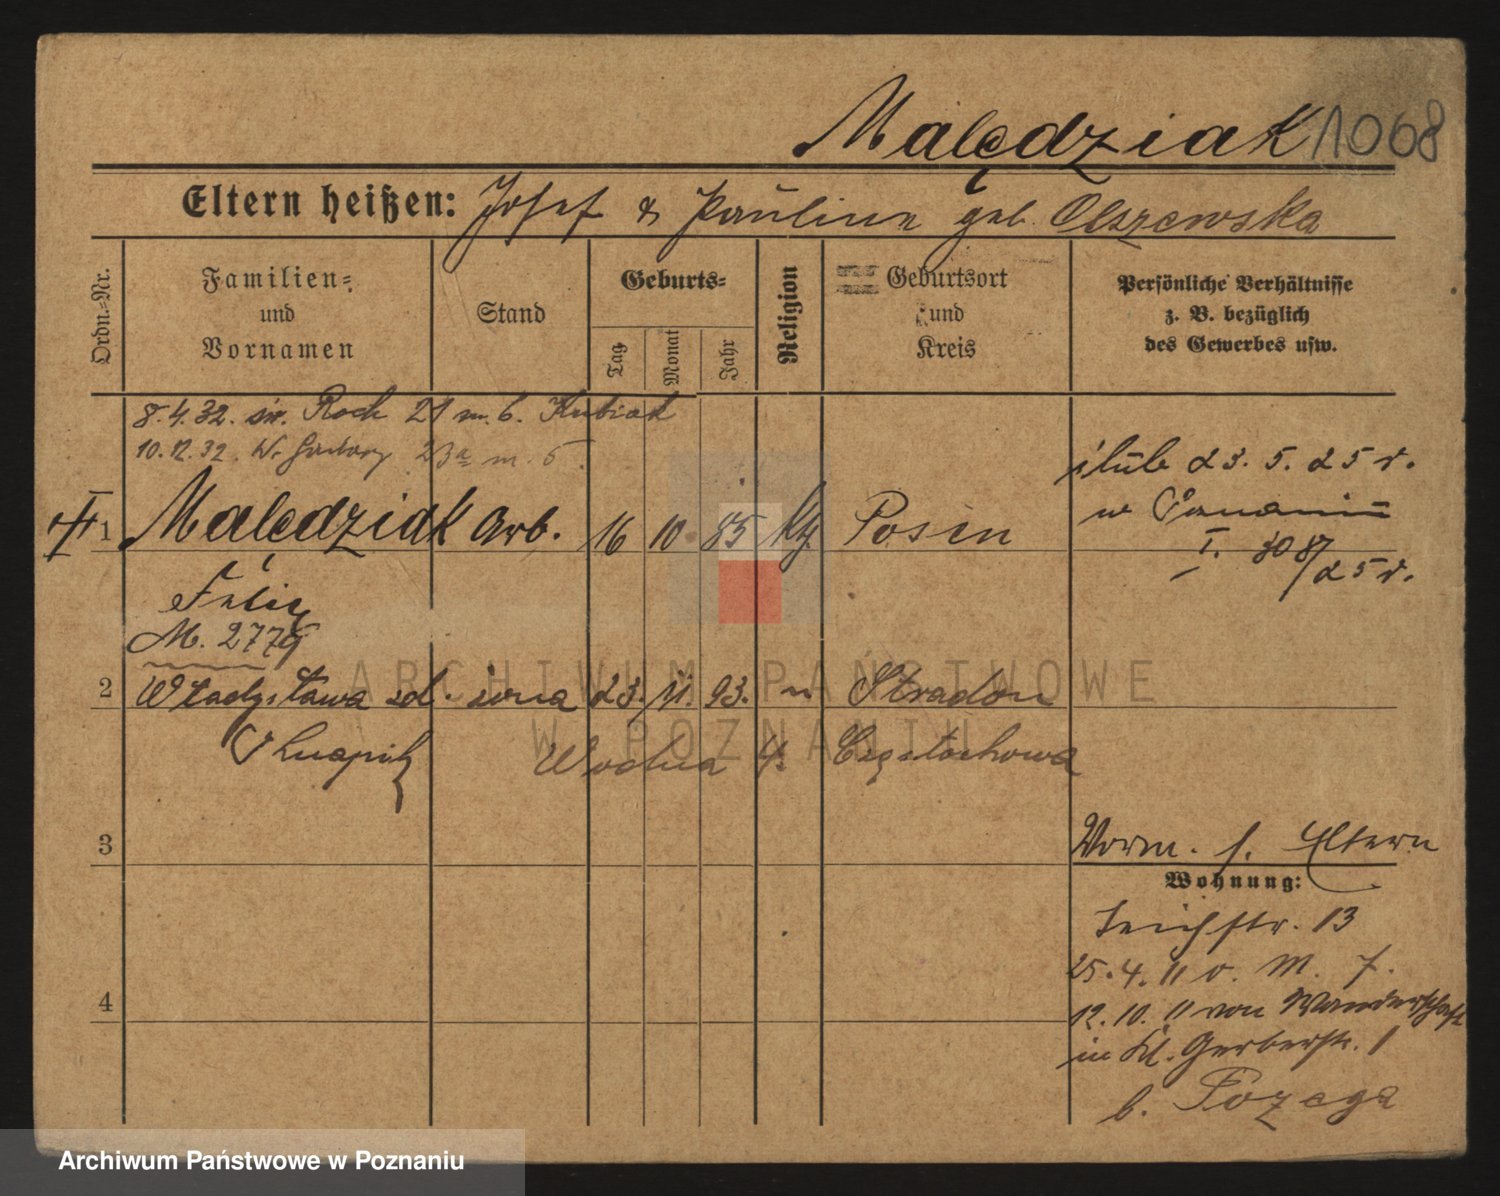 Malędziak 1068
Eltern heißen: Josef & Pauline geb. Olszewska
Ordn.-Nr.
Familien- und Vornamen
Stand
Geburts-
Tag
Monat
Jahr
Religion
Geburtsort und Kreis
Persönliche Verhältnisse
z. B. bezüglich
des Gewerbes usw.
8.4.32. św. Roch 21 m. 6. Kubiak
10.12.32. W. 23a m. 6.
ślub 23. 5. 25 r.
w Poznaniu
I. 308/25 r.
1 Malędziak Arb. 16 10. 85 kth Posen
Felix
M. 2779
2 Władysława zd. żona 23. 11. 93. " Stradom
Wodna 4. Częstochowa
3
Vorm. s. Eltern
Wohnung:
Teichstr. 13
25. 4. 11 v. M. 7.
4
12. 10. 11 von Wanderschaft
in Kl. Gerberstr. 1
b.
ARCHIWUM PAŃSTWOWE
W POZNANIU
Archiwum Państwowe w Poznaniu